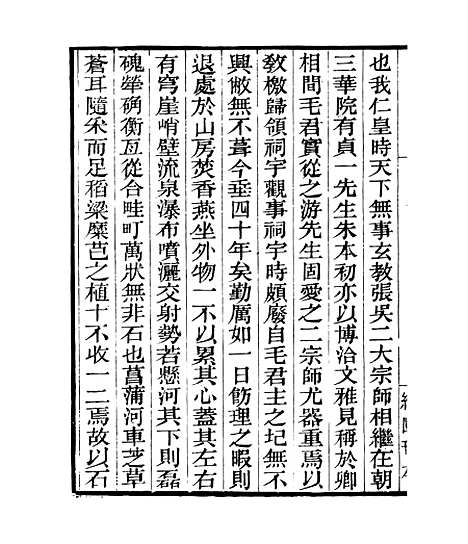 也我仁皇時天下無事玄教張吳二大宗師相繼在朝
三華院有貞一先生朱本初亦以博洽文雅見稱於卿
相間毛君實從之游先生固愛之二宗師尤器重焉以
敎檄歸領祠宇觀事祠宇時頗廢自毛君主之圮無不
興敝無不葺今垂四十年矣勤厲如一日飭理之暇則
退處於山房焚香燕坐外物一不以累其心蓋其左右
有穹崖峭壁流泉瀑布噴灑交射勢若懸河其下則磊
磈犖确衡亙從合畦町萬狀無非石也菖蒲河車芝草
蒼耳隨采而足稻粱糜芑之植十不收一二焉故以石